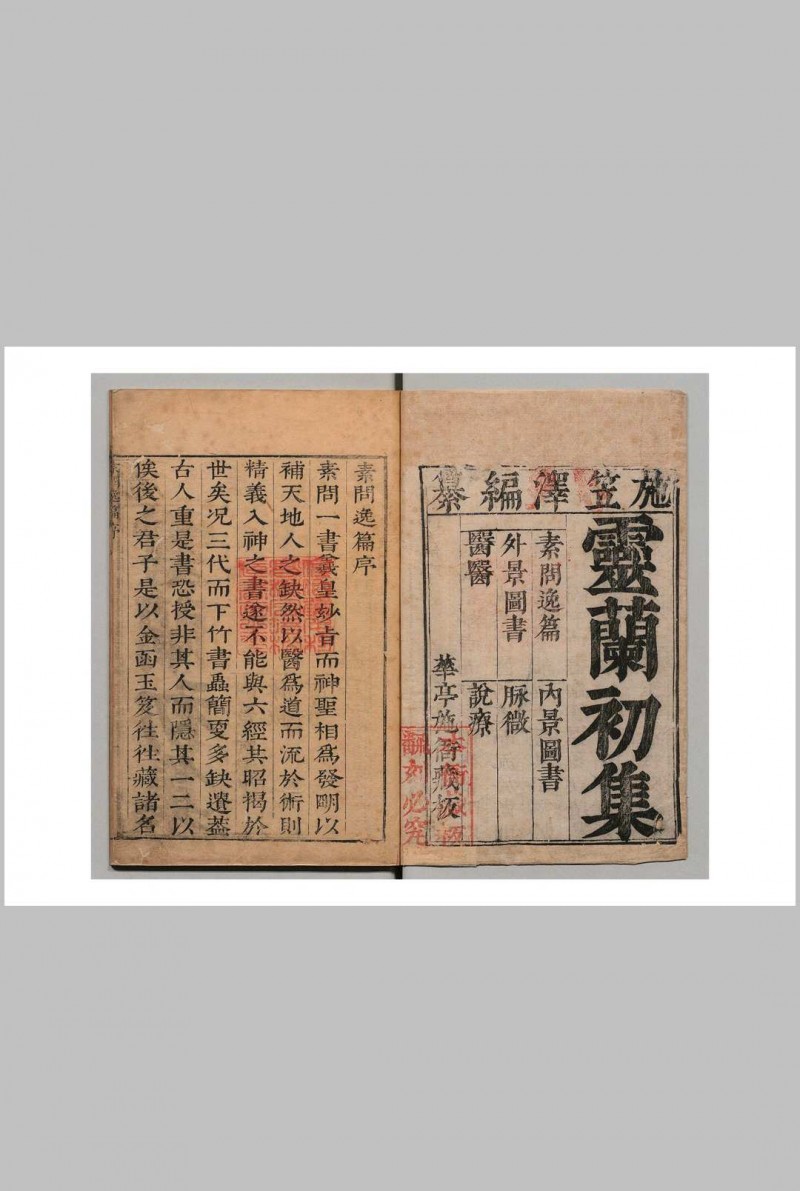 施笠澤編纂
靈蘭初集
素問逸篇 內景圖書
外景圖書 脉微
醫醫 說療
華亭施衙藏板
必究
素問逸篇序
素問一書羲皇妙㫖而神聖相爲發明以
補天地人之缺然以醫爲道而流於術則
精義入神之書遂不能與六經共昭揭於
世矣况三代而下竹書蟲簡更多缺遺葢
古人重是書恐授非其人而隱其一二以
俟後之君子是以金函玉笈往往藏諸名